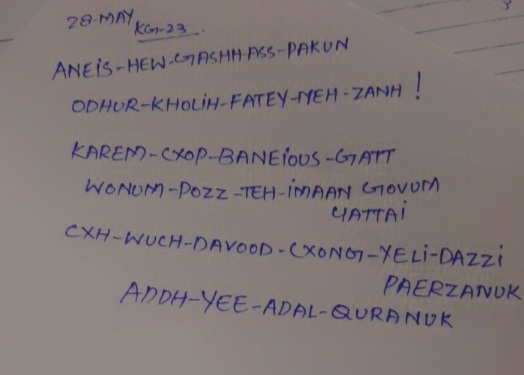 28-MAY KG-23.
ANEIS-HEW-GASHH-ASS-PAKUN
ODHUR-KHOLIH-FATEY-NEH-ZANH!
KAREM-CXOP-BANEIOUS-GATT
WONUM-POZZ-TEH-IMAAN GOVUM
YATTAI
CXH-WUCH-DAVOOD-CXONG-YELI-DAZZI
PAERZANUK
ADDH-YEE-ADAL-QURANUK